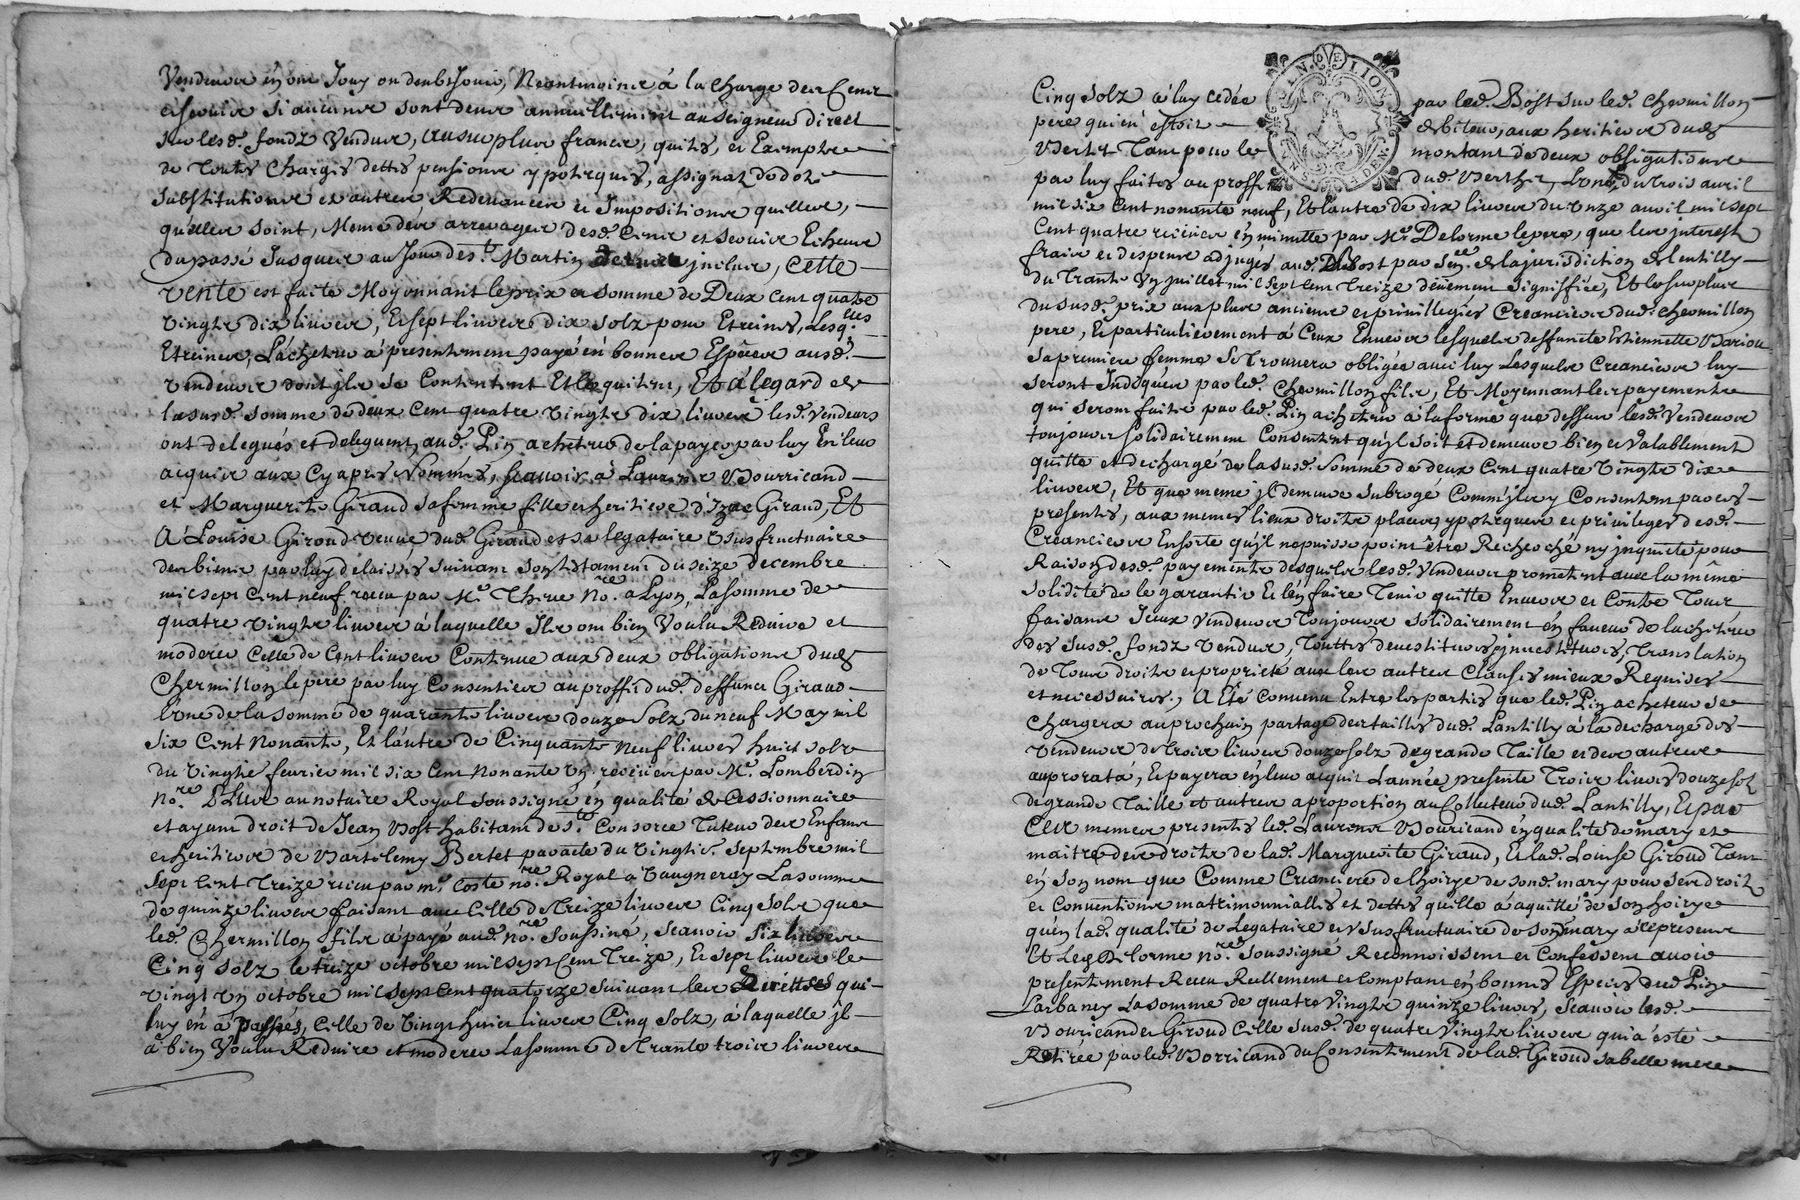 Vendeurs en ont Jouy ou deubt Jouir, Neantmoins à la charge des Cens
et servis si aucuns sont deus annuellement au seigneur direct
sur lesd. fondz Vendus, au surplus francs, quites, et Exempts
de Toutes Charges dettes pensions ypoteques, assignaz de dot
substitutions et autres Redevances et Impositions quelles,
quelles soint, Meme des arrerages desd. Cens et servis Echeus
du passé Jusques au Jour de st. Martin dernier jnclus, Cette
vente est faite Moyonnant le prix et somme de Deux Cent quatre
vingts dix livres, Et sept livres dix solz pour Etreines, Lesq.lles
Etreines, L'achepteur à presentement payé en bonnes Espèces ausd.
vendeurs dont jls se Contentent Et le quitent, Et à legard de
la susd. somme de deux Cent quatre vingts dix livres lesd. vendeurs
ont delegués et deleguent aud. Pin achetteur de la payer par luy En leur
acquit aux Cy apres Nommés, scauoir à Laurent Bourricand
et Marguerite Giraud sa femme fille et heritiere d'Izac Giraud, Et
A Louise Giroud veuve dud. Giraud et sa legataire Vsusfructuaire
des biens par luy delaissés suivant son testament du seize decembre
mil sept Cent neuf receu par Me. Theve No.re a Lyon, La somme de
quatre vingts livres à laquelle Ils ont bien Voulu Reduire et
moderer Celle de Cent livres Contenue aux deux obligations dud.
Chermillon le pere par luy Consenties au proffit dud. deffunct Giraud
L'une de la somme de quarante livres douze Solz du neuf May mil
six Cent Nonante, Et l'autre de Cinquante neuf livres huit solz
du vingtie fevrier mil six Cent Nonante Vn receües par Me. Lomberdin
No.re Plus au notaire Royal soussigné en qualité de Cessionnaire
et ayant droit de Jean Bost habitant de St. Consorce Tuteur des Enfans
et heritiers de Bartelemy Bertet par acte du vingtie. septembre mil
sept Cent Treize receu par Me. Coste no.re Royal a Vaugneray La somme
de quinze livres faisant avec Celle de Treize livres Cinq Solz que
led. Chermillon fils à payé aud. no.re soussiné, scauoir six livres
Cinq solz le treize octobre mil sept Cent Treize, Et sept livres le
vingt Vn octobre mil sept Cent quatorze suivant les quittces qui
luy en à passées, Celle de vingt huit livres Cinq Solz, à laquelle jl
à bien Voulu Reduire et moderer La somme de Trante trois livres
Cinq solz à luy cedée par led. Bost sur led. Chermillon
pere qui en estoit debiteur, aux heritiers dud.
Bertet Tant pour le montant de deux obligations
par luy faites au proffit dud. Berthet, L'une du trois avril
mil six Cent nonante neuf, Et l'autre de dix livres du onze avril mil sept
Cent quatre receues en minutte par Me. Delorme le pere, que les jnterest
frais et despens adjugés aud. Dubost par Sen.ce de la jurisdiction de Lentilly
du Trante Vn juillet mil sept Cent Treize deüement signiffiée, Et le surplus
du susd. prix aux plus anciens et privillegiés Creanciers dud. Chermillon
pere, Et particulierement à Ceux Envers lesquels deffuncte Estiennette Bariou
sa premiere femme se Trouvera obligée avec luy Lesquels Creanciers luy
seront Indiqués par led. Chermillon fils, Et Moyennant les payements
qui seront faits par led. Pin achetteur à la forme que dessus lesd. Vendeurs
toujours solidairement Consentent qu'jl soit et demeure bien et valablement
quitte et dechargé de la susd. somme de deux Cent quatre vingts dix
livres, Et que meme jl demeure subrogé Comm'jls y Consentent par ces
presentes, aux memes lieux droits places ypoteques et privileges desd.
Creanciers Ensorte qu'jl ne puisse point être Recherché ny jnquieté pour
Raison desd. payements desquels lesd. vendeurs promettent avec la même
solidité de le garantir Et l'en faire Tenir quitte Envers et Contre Tous
faisant Iceux vendeurs Toujours solidairement en faveur de l'achetteur
des susd. fondz Vendus, Touttes devestitures jnvestitures, Translation
de Tous droits et proprieté avec les autres Clauses mieux Requises
et necessaires, A Eté Convenu Entre les parties que led. Pin acheteur se
Chargera au prochain partage des tailles dud. Lantilly à la decharge des
vendeurs de Trois livres douze solz de grande Taille et des autres
au prorata, Et payera en leur acquit L'année presente Trois livres douze solz
de grande Taille et autres a proportion au Collecteur dud. Lantilly, Et par
Ces memes presentes led. Laurent Bouricand en qualité de mary et
maitre des droits de lad. Marguerite Giraud, Et lad. Louise Giroud Tant
en son nom que Comme Creanciere de l'hoirye de sond. mary pour ses droit
et Conventions matrimonnialles et dettes quelle à aquitté de son hoirye
qu'en lad. qualité de Legataire et vsusfructuaire de sond. mary à represent
Et Led. Delorme no.re soussigné Reconnoissent et Confessent avoir
presentement Receu Reellement et Comptant en bonnes Especes dud. Pin
Larbaney La somme de quatre vingts quinze livres, scauoir lesd.
Bouricand et Giroud Celle susd. de quatre vingts livres qui à esté
Retirée par led. Borricand du Consentement de lad. Giroud sa belle mere